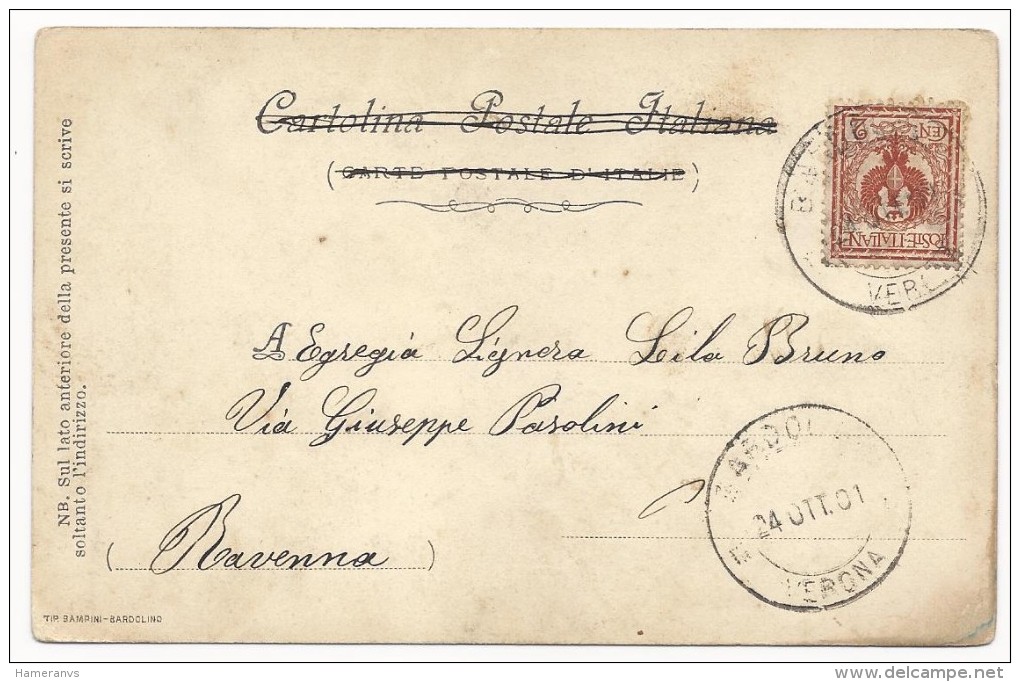 Cartolina Postale Italiana
(CARTE POSTALE D'ITALIE)
NB. Sul lato anteriore della presente si scrive
soltanto l'indirizzo.
CEN 2
POSTE·ITALIAN
VER
A Egregia Signora Lila Bruno
Via Giuseppe Pasolini
(Ravenna)
BARDOL
24 OTT. 01
VERONA
TIP. SAMPINI-BARDOLINO
Hameranvs
delcampe.net